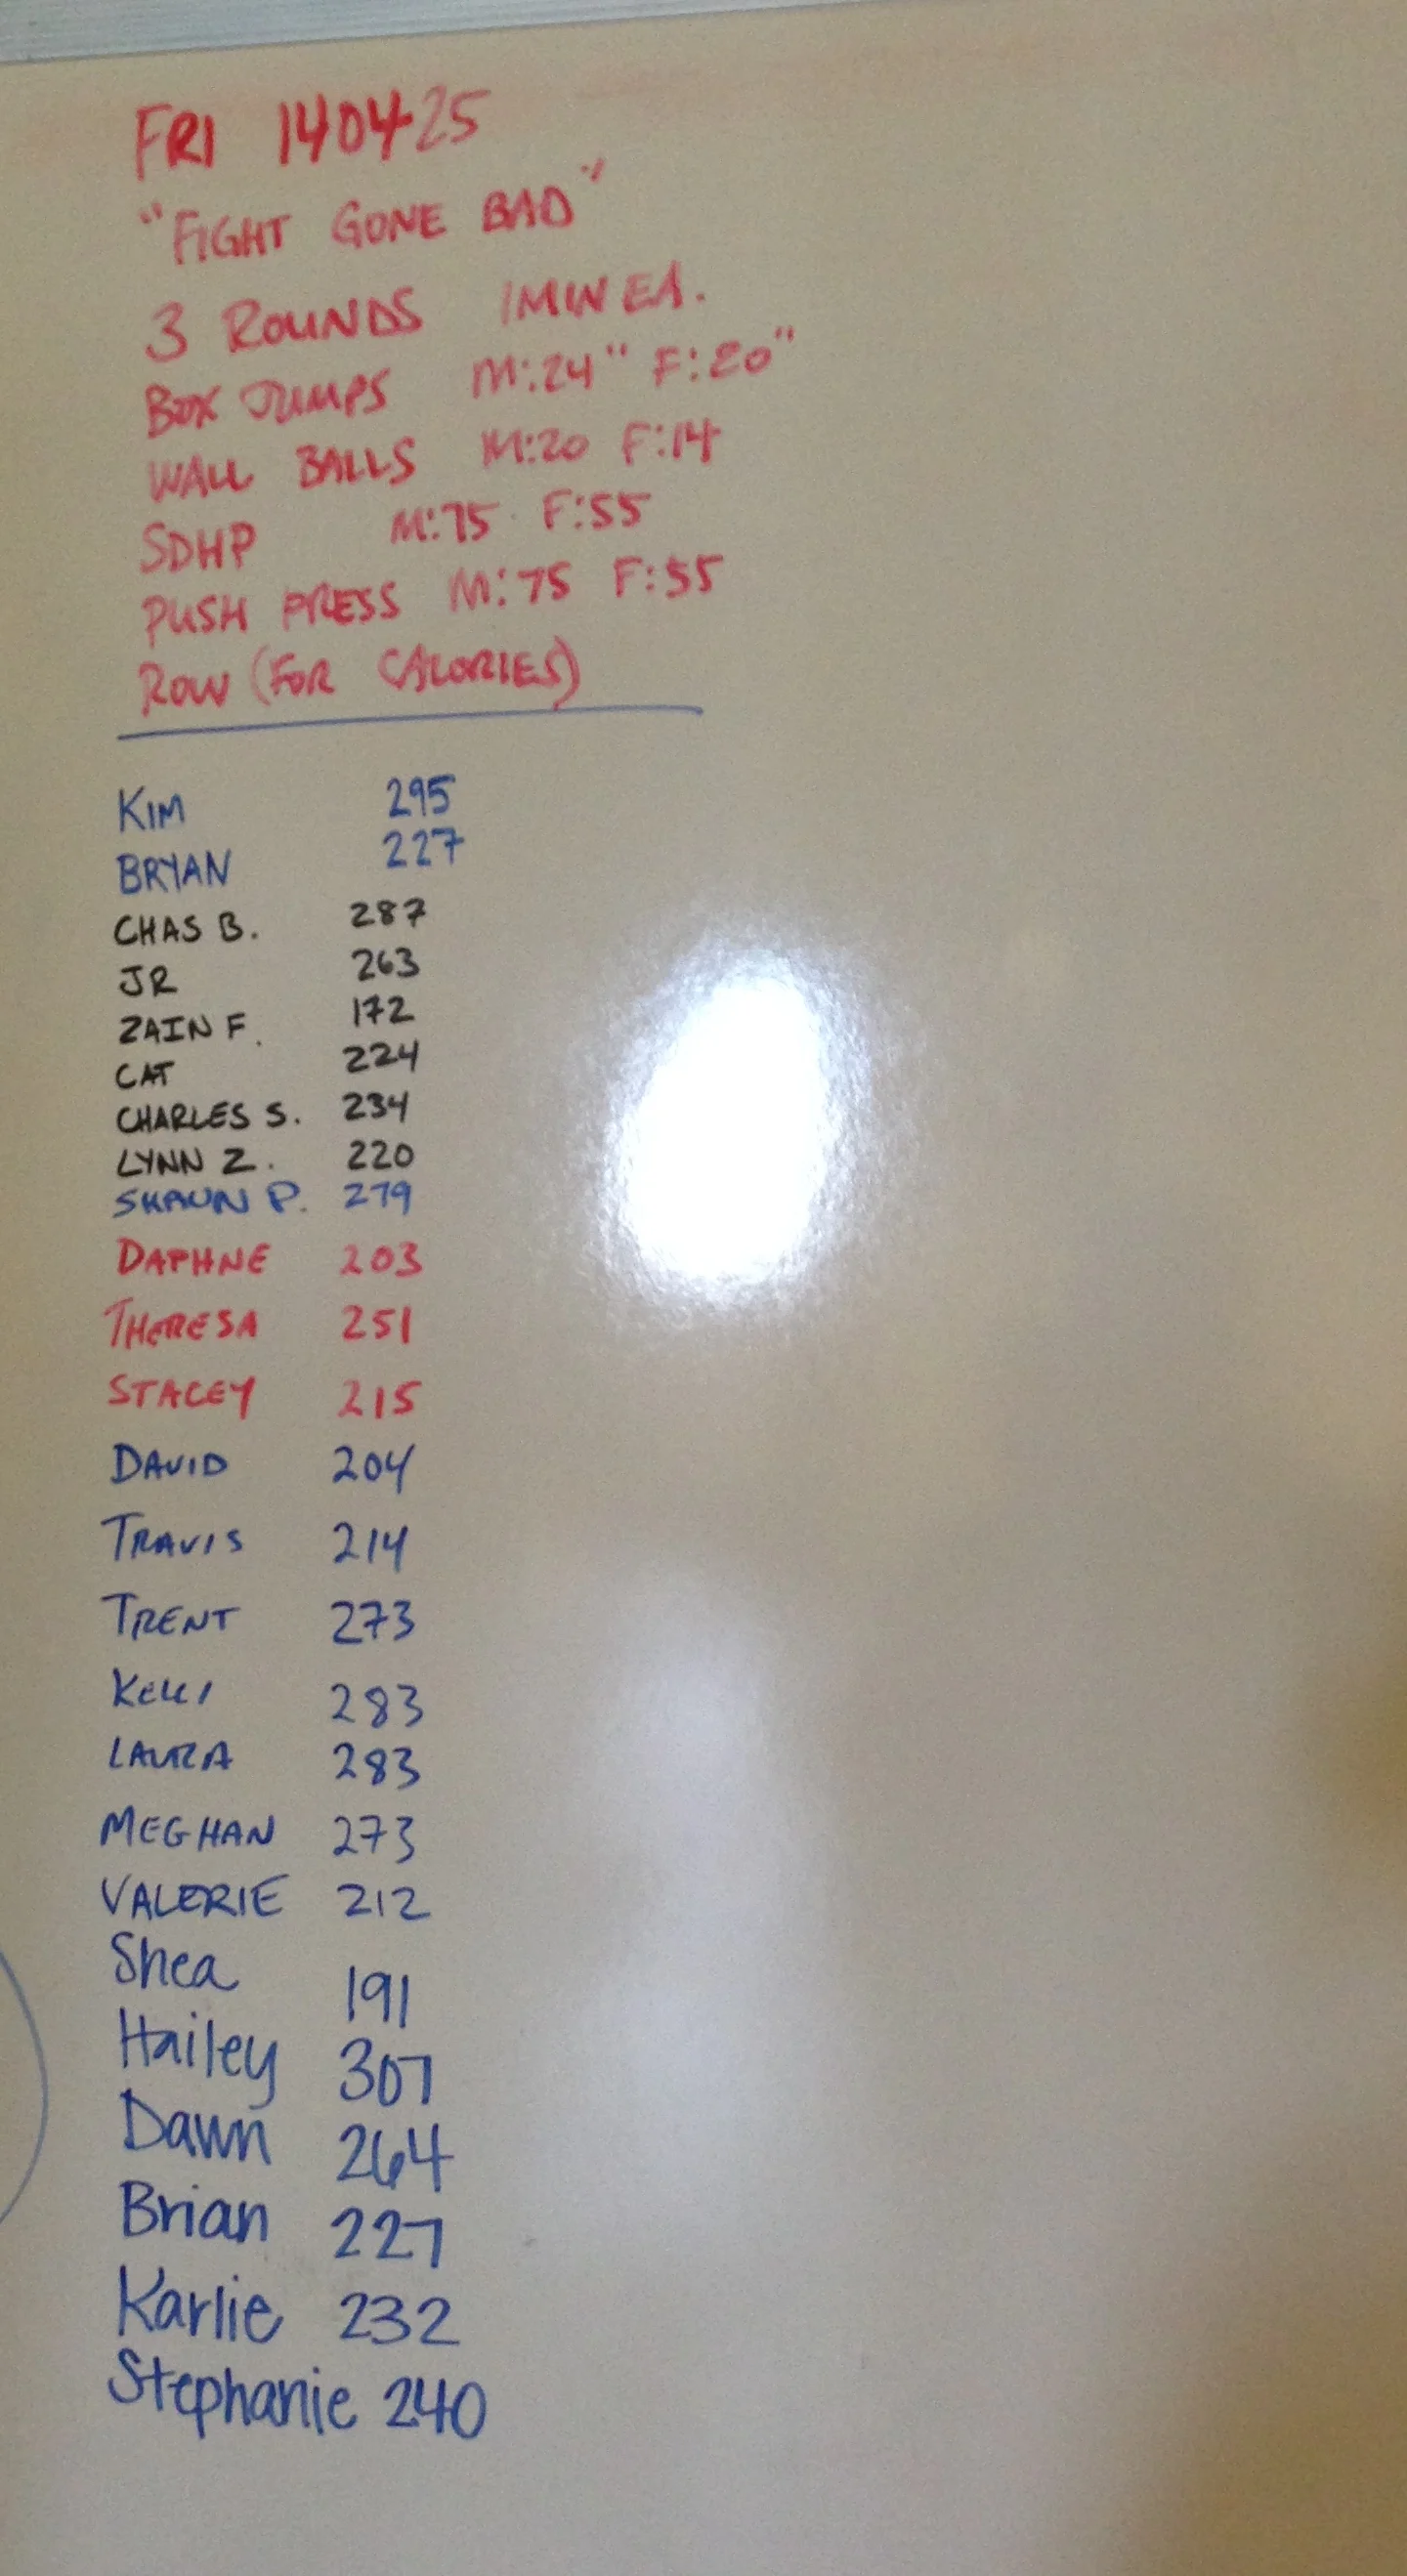 FRI 140425
"FIGHT GONE BAD"
3 ROUNDS 1MIN EA.
BOX JUMPS M:24" F:20"
WALL BALLS M:20 F:14
SDHP M:75 F:55
PUSH PRESS M:75 F:55
ROW (FOR CALORIES)
KIM 295
BRYAN 227
CHAS B. 287
JR 263
ZAIN F. 172
CAT 224
CHARLES S. 234
LYNN Z. 220
SHAUN P. 279
DAPHNE 203
THERESA 251
STACEY 215
DAVID 204
TRAVIS 214
TRENT 273
KELLI 283
LAURA 283
MEGHAN 273
VALERIE 212
Shea 191
Hailey 307
Dawn 264
Brian 227
Karlie 232
Stephanie 240